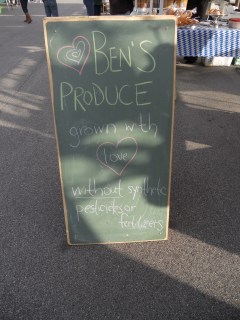 BEN'S
PRODUCE
grown with
love
without synthetic
pesticides or
fertilizers